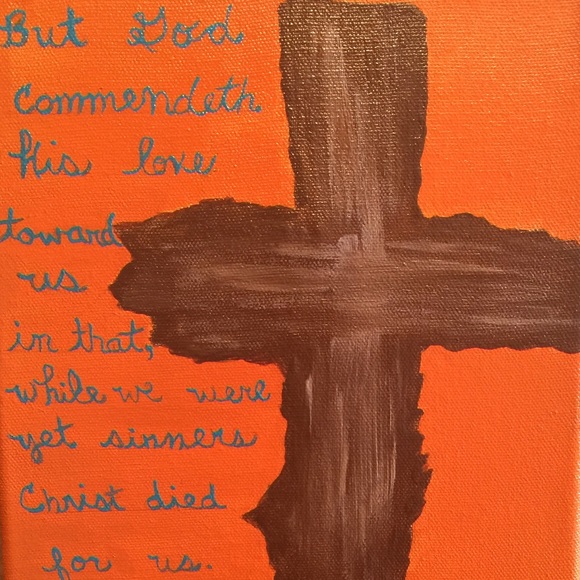 But God
Commendeth
His love
toward
us
in that,
while we were
yet sinners
Christ died
for us.